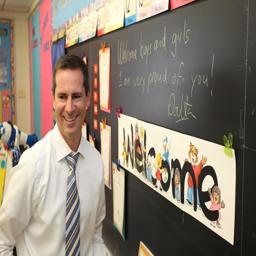 Welcome boys and girls
I am very proud of you!
Welcome